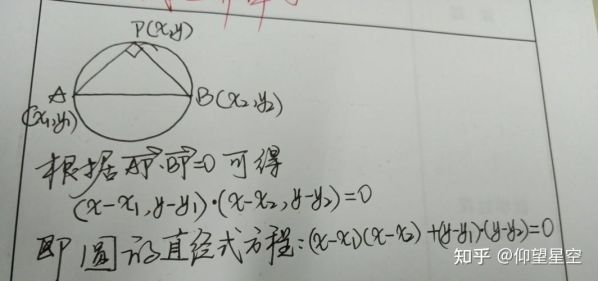 P(x,y)
A
(x₁,y₁)
B(x₂,y₂)
根据AP→·BP→=0 可得
(x-x₁,y-y₁)·(x-x₂,y-y₂)=0
即圆的直径式方程:(x-x₁)(x-x₂)+(y-y₁)·(y-y₂)=0
知乎 @仰望星空